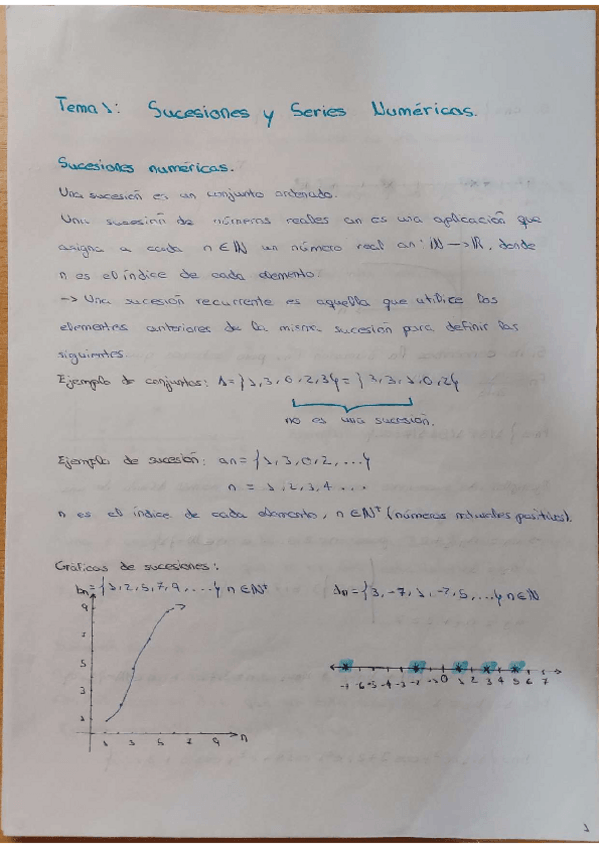 Tema 1: Sucesiones y Series Numéricas.
Sucesiones numéricas.
Una sucesión es un conjunto ordenado.
Una sucesión de números reales an es una aplicación que
asigna a cada n∈ℕ un número real an: ℕ → ℝ, donde
n es el índice de cada elemento.
→ Una sucesión recurrente es aquella que utilice los
elementos anteriores de la misma sucesión para definir las
siguientes.
Ejemplo de conjuntos: A={1,3,0,2,3}={3,3,1,0,2}
no es una sucesión.
Ejemplo de sucesión: an={1,3,0,2,...}
n = 1,2,3,4...
n es el índice de cada elemento, n∈ℕ⁺ (números naturales positivos).
Gráficas de sucesiones:
bn={1,2,5,7,9,...} n∈ℕ⁺
An={3,-7,1,-2,5,...} n∈ℕ
9
7
5
3
1
1 3 5 7 9 n
-7 -6 -5 -4 -3 -2 -1 0 1 2 3 4 5 6 7
1